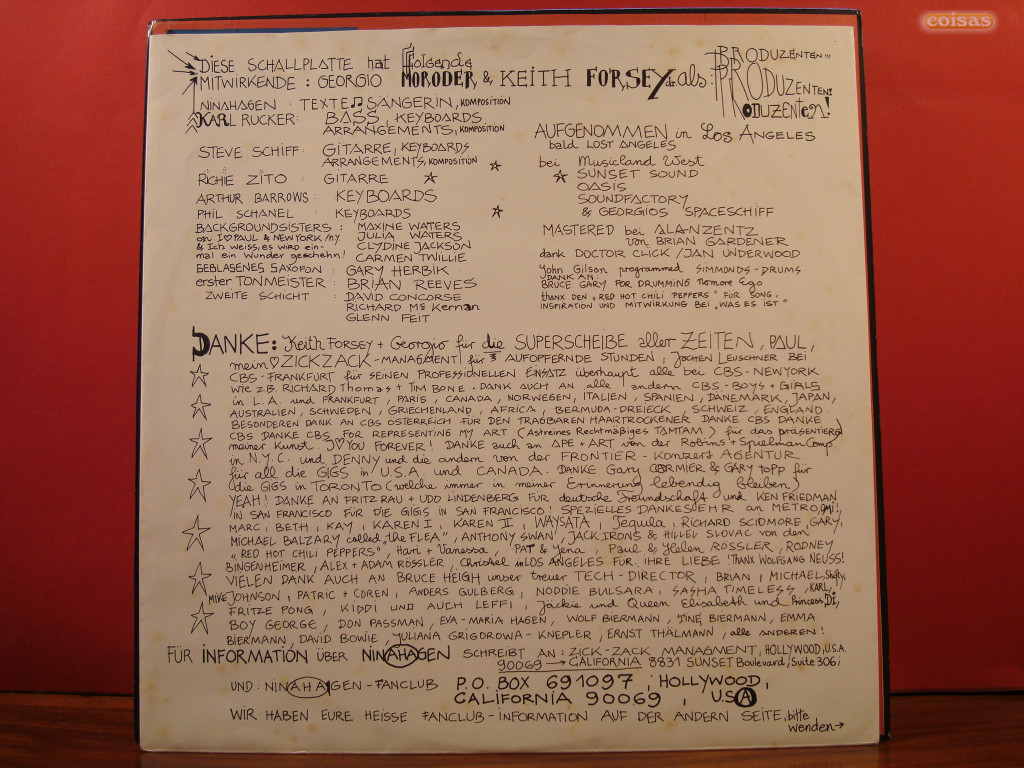 coisas
DIESE SCHALLPLATTE hat folgende
MITWIRKENDE : GEORGIO MORODER & KEITH FORSEY als : PRODUZENTEN!!! PRODUZENTEN! PRODUZENTEN!
NINAHAGEN : TEXTE SÄNGERIN, KOMPOSITION
KARL RUCKER : BASS, KEYBOARDS,
ARRANGEMENTS, KOMPOSITION
STEVE SCHIFF : GITARRE, KEYBOARDS
ARRANGEMENTS, KOMPOSITION
RICHIE ZITO : GITARRE
ARTHUR BARROWS : KEYBOARDS
PHIL SCHANEL : KEYBOARDS
BACKGROUNDSISTERS : MAXINE WATERS
on I♡PAUL & NEW YORK/N.Y. JULIA WATERS
& Ich weiss, es wird ein- CLYDINE JACKSON
mal ein Wunder geschehn! CARMEN TWILLIE
GEBLASENES SAXOFON : GARY HERBIK
erster TONMEISTER : BRIAN REEVES
ZWEITE SCHICHT : DAVID CONCORSE
RICHARD Mc Kernan
GLENN FEIT
AUFGENOMMEN in LOS ANGELES
bald LOST ANGELES
bei Musicland West
SUNSET SOUND
OASIS
SOUNDFACTORY
& GEORGIOS SPACESCHIFF
MASTERED bei ALANZENTZ
von BRIAN GARDENER
dank DOCTOR CLICK / JAN UNDERWOOD
John Gilson programmed SIMMONDS-DRUMS
DANK AN:
BRUCE GARY FOR DRUMMING nomore Ego
thanx DEN „RED HOT CHILI PEPPERS" FÜR SONG,
INSPIRATION UND MITWIRKUNG BEI „WAS ES IST"
DANKE: Keith FORSEY + Georgio für die SUPERSCHEIBE aller ZEITEN, PAUL,
mein♡ZICKZACK-MANAGMENT für AUFOPFERNDE STUNDEN, JOCHEN LEUSCHNER BEI
CBS-FRANKFURT für SEINEN PROFESSIONELLEN EINSATZ überhaupt alle bei CBS-NEWYORK
wie z.B. RICHARD Thomas + TIM BONE. DANK AUCH AN alle andern CBS-BOYS + GIRLS
in L.A. und FRANKFURT, PARIS, CANADA, NORWEGEN, ITALIEN, SPANIEN, DÄNEMARK, JAPAN,
AUSTRALIEN, SCHWEDEN, GRIECHENLAND, AFRICA, BERMUDA-DREIECK, SCHWEIZ, ENGLAND.
BESONDEREN DANK AN CBS ÖSTERREICH FÜR DEN TRAGBAREN HAARTROCKENER DANKE CBS DANKE
CBS DANKE CBS FOR REPRESENTING MY ART (Astreines Rechtmäßiges TAMTAM) für das präsentieren
meiner Kunst. I♡YOU FOREVER! DANKE auch an APE + ART von der Robins + Spielman Comp.
in N.Y.C. und DENNY und die andern von der FRONTIER-Konzert AGENTUR
für all die GIGS in U.S.A. und CANADA. DANKE Gary CORMIER & GARY TOPP für
die GIGS in TORONTO (welche immer in meiner Erinnerung lebendig bleiben)
YEAH! DANKE AN FRITZ RAU + UDO LINDENBERG FÜR deutsche Freundschaft und KEN FRIEDMAN
IN SAN FRANCISCO FÜR DIE GIGS IN SAN FRANCISCO! SPEZIELLES DANKESEHR an METRO,
MARC, BETH, KAY, KAREN I, KAREN II, WAYSATA, Tequila, RICHARD SCIDMORE, GARY,
MICHAEL BALZARY called „the FLEA", ANTHONY SWAN, JACK IRONS & HILLEL SLOVAC von den
„RED HOT CHILI PEPPERS", Hari + Vanessa, PAT & Yena, Paul & Helen RÖSSLER, RODNEY
BINGENHEIMER, ALEX + ADAM RÖSSLER, Christel in LOS ANGELES FÜR IHRE LIEBE! THANX WOLFGANG NEUSS!
VIELEN DANK AUCH AN BRUCE HEIGH unser treuer TECH-DIRECTOR, BRIAN, MICHAEL, Shifty,
MIKE JOHNSON, PATRIC + COREN, ANDERS GULBERG, NODDIE BULSARA, SASHA TIMELESS, KARL,
FRITZE PONG, KIDDI UND AUCH LEFFI, Jackie und Queen Elisabeth und Princess DI,
BOY GEORGE, DON PASSMAN, EVA-MARIA HAGEN, WOLF BIERMANN, TINE BIERMANN, EMMA
BIERMANN, DAVID BOWIE, YULIANA GRIGOROWA-KNEPLER, ERNST THÄLMANN, alle ANDEREN!
FÜR INFORMATION ÜBER NINAHAGEN SCHREIBT AN: ZICK-ZACK MANAGMENT, HOLLYWOOD, U.S.A.
90069 → CALIFORNIA 8831 SUNSET Boulevard, Suite 306;
UND : NINAHAGEN-FANCLUB P.O. BOX 691097, HOLLYWOOD,
CALIFORNIA 90069, USA
WIR HABEN EURE HEISSE FANCLUB-INFORMATION AUF DER ANDERN SEITE, bitte
wenden→